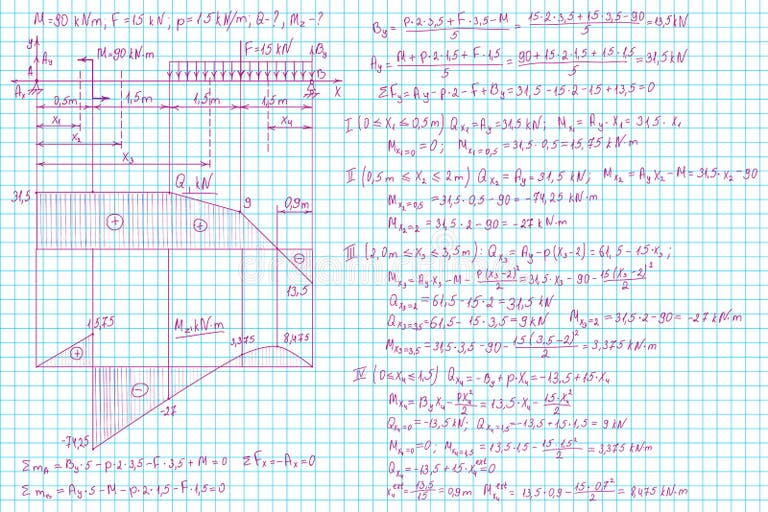 M=90 kNm; F=15 kN; p=15 kN/m; Q-?, Mz-?
y
M=90 kN·m
F=15 kN
By
Ay
A
B
Ax
x
0,5m
1,5m
1,5m
1,5m
x1
x4
x2
x3
31,5
Q, kN
9
0,9m
+
+
-
13,5
15,75
Mz, kN·m
3,375
8,475
+
-
-27
-74,25
ΣmA = By·5-p·2·3,5-F·3,5+M=0 ΣFx=-Ax=0
ΣmB = Ay·5-M-p·2·1,5-F·1,5=0
By = (p·2·3,5+F·3,5-M)/5 = (15·2·3,5+15·3,5-90)/5 = 13,5 kN
Ay = (M+p·2·1,5+F·1,5)/5 = (90+15·2·1,5+15·1,5)/5 = 31,5 kN
ΣFy=Ay-p·2-F+By=31,5-15·2-15+13,5=0
I (0≤x1≤0,5m) Qx1=Ay=31,5 kN; Mx1=Ay·x1=31,5·x1
Mx1=0=0; Mx1=0,5=31,5·0,5=15,75 kN·m
II (0,5m≤x2≤2m) Qx2=Ay=31,5 kN; Mx2=Ayx2-M=31,5·x2-90
Mx2=0,5=31,5·0,5-90=-74,25 kN·m
Mx2=2=31,5·2-90=-27 kN·m
III (2,0m≤x3≤3,5m): Qx3=Ay-p(x3-2)=61,5-15·x3;
Mx3=Ayx3-M-p(x3-2)²/2=31,5·x3-90-15(x3-2)²/2
Qx3=2=61,5-15·2=31,5 kN
Qx3=3,5=61,5-15·3,5=9 kN Mx3=2=31,5·2-90=-27 kN·m
Mx3=3,5=31,5·3,5-90-15(3,5-2)²/2=3,375 kN·m
IV (0≤x4≤1,5) Qx4=-By+p·x4=-13,5+15·x4
Mx4=Byx4-px4²/2=13,5·x4-15·x4²/2
Qx4=0=-13,5 kN; Qx4=1,5=-13,5+15·1,5=9 kN
Mx4=0=0; Mx4=1,5=13,5·1,5-15·1,5²/2=3,375 kNm
Qx4=-13,5+15·x4ext=0
x4ext=13,5/15=0,9m Mx4ext=13,5·0,9-15·0,7²/2=8,475 kN·m